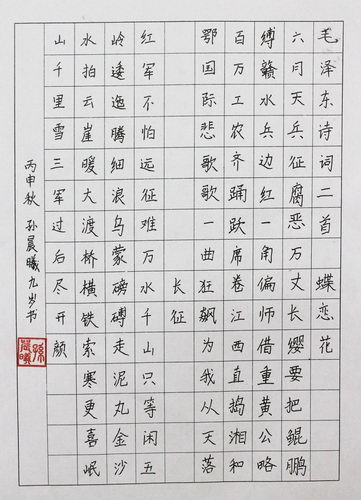 毛泽东诗词二首 蝶恋花
六月天兵征腐恶万丈长缨要把鲲鹏
缚赣水兵边红一角偏师借重黄公略
百万工农齐踊跃席卷江西直捣湘和
鄂国际悲歌歌一曲狂飙为我从天落
长征
红军不怕远征难万水千山只等闲五
岭逶迤腾细浪乌蒙磅礴走泥丸金沙
水拍云崖暖大渡桥横铁索寒更喜岷
山千里雪三军过后尽开颜
丙申秋 孙晨曦九岁书
孫晨曦